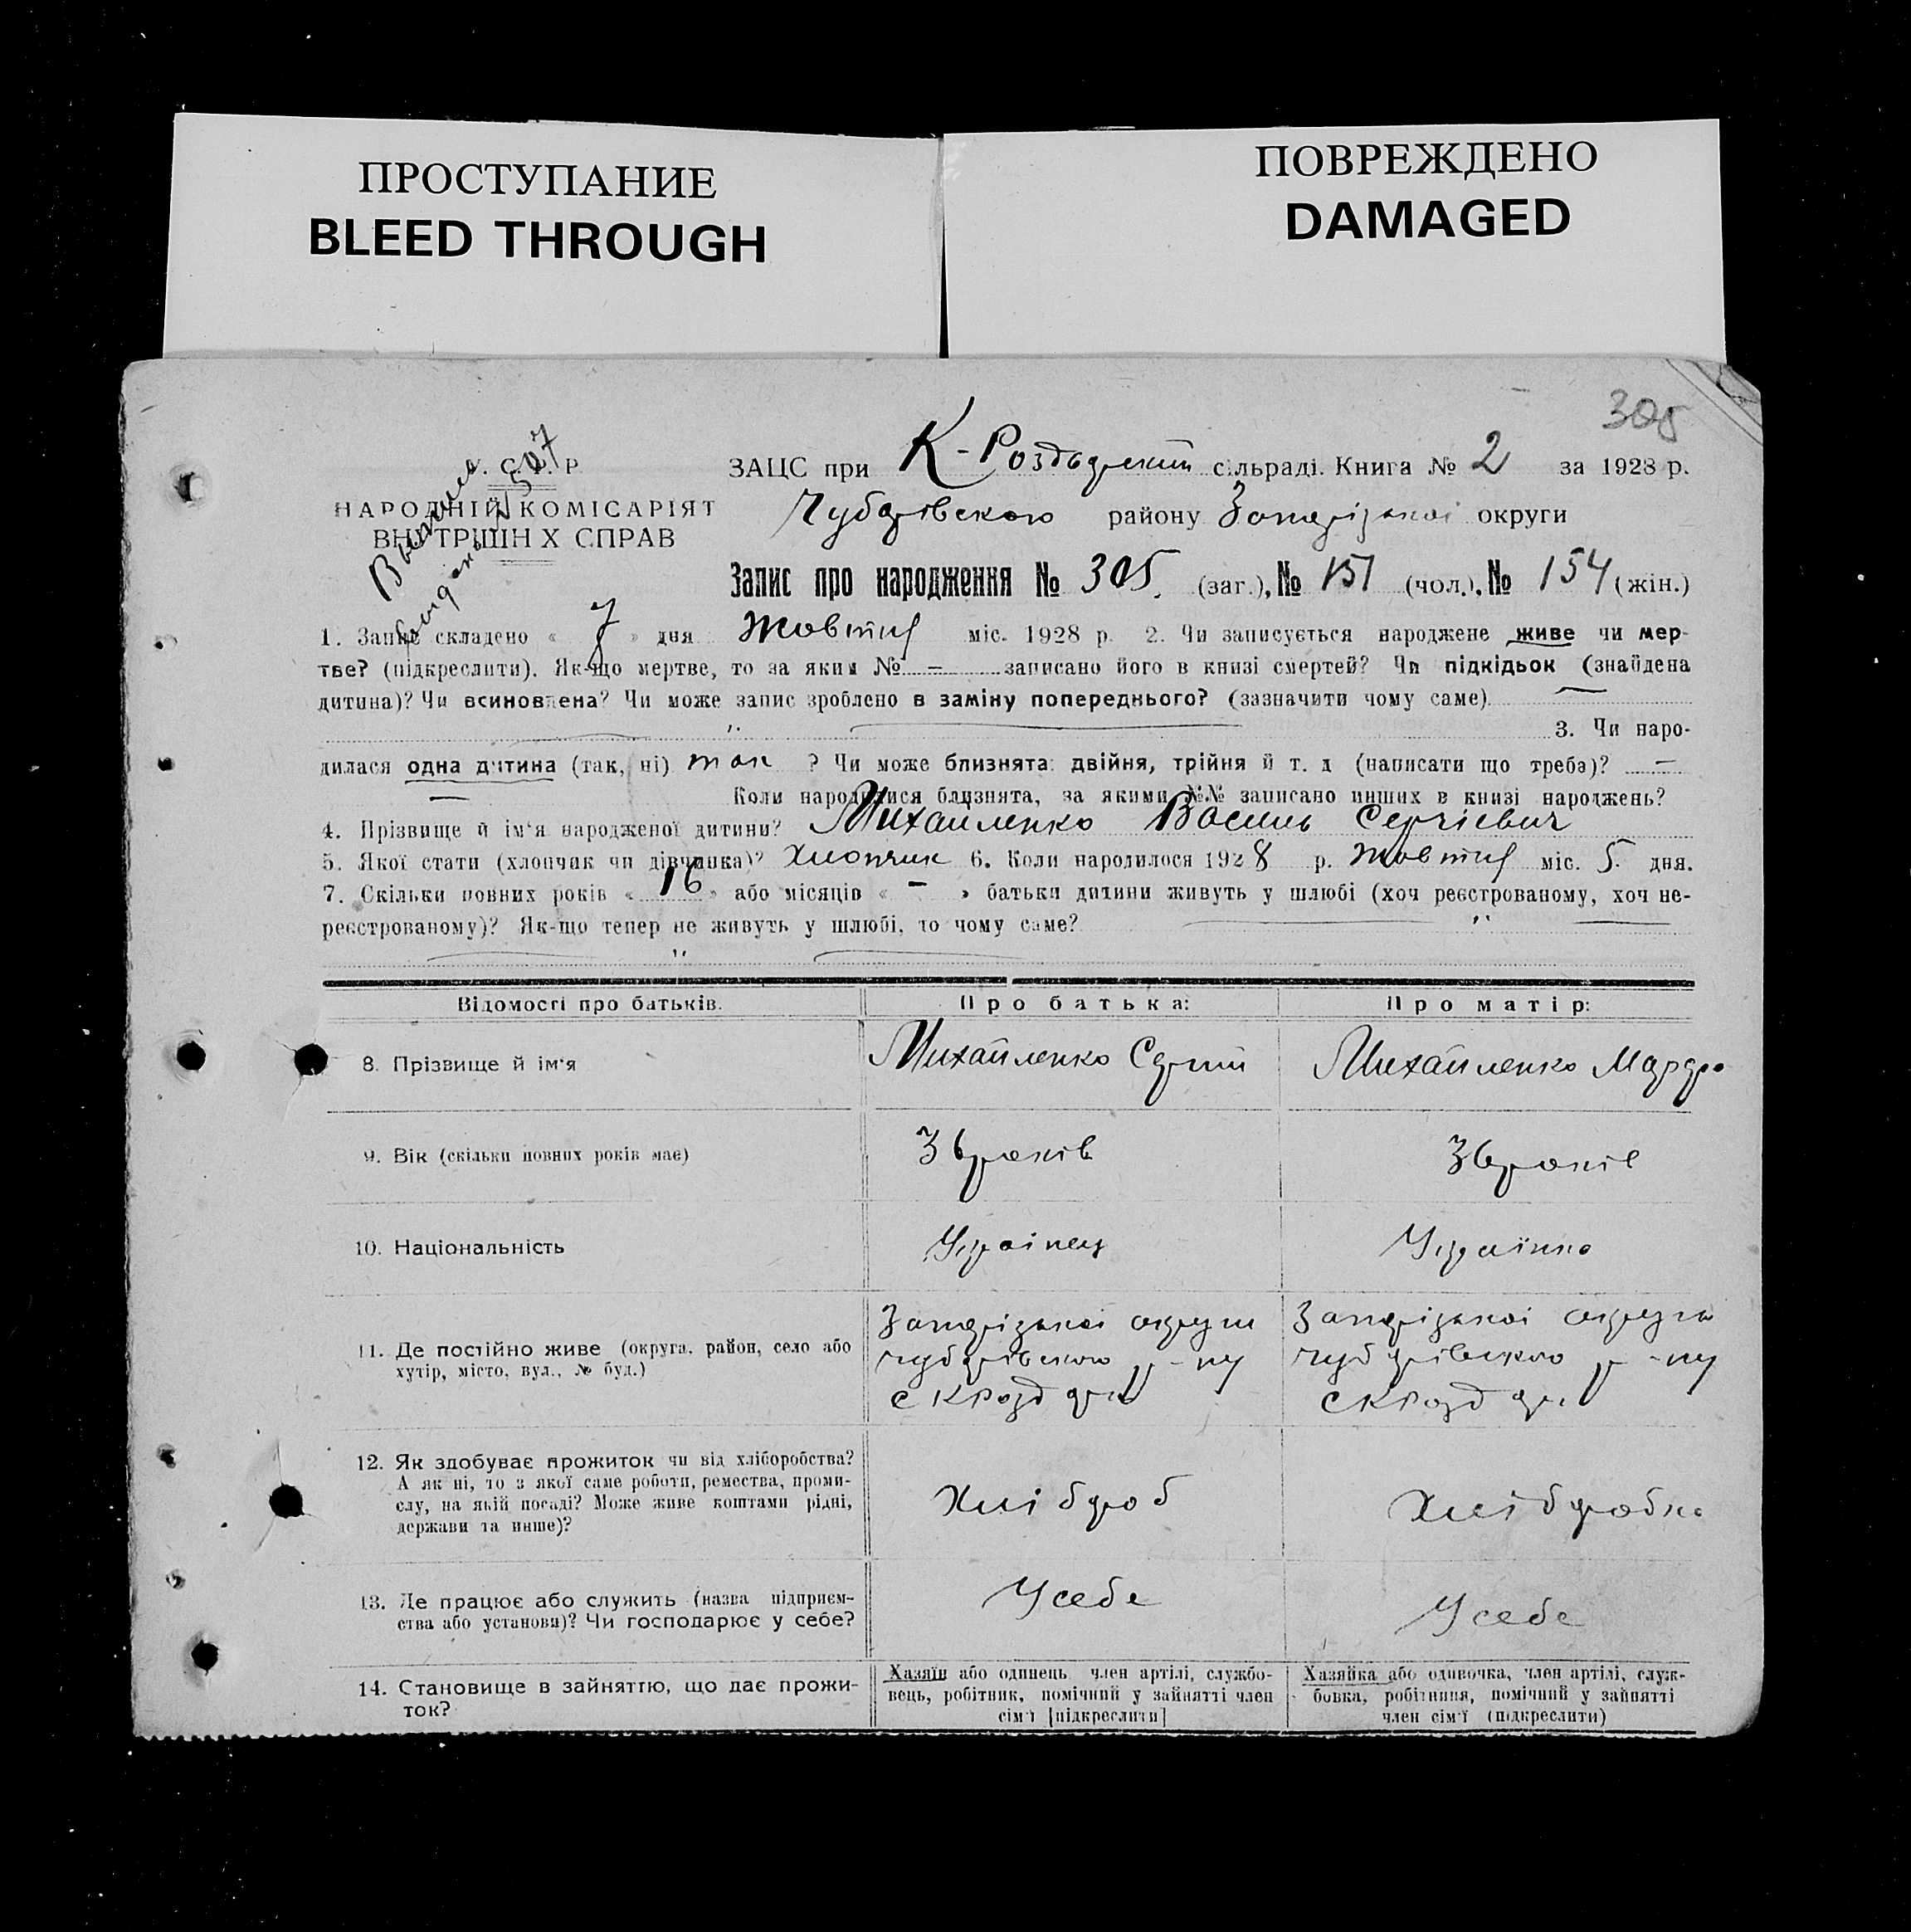 ПРОСТУПАНИЕ
BLEED THROUGH
ПОВРЕЖДЕНО
DAMAGED
305
У. С. Р. Р.
НАРОДНІЙ КОМІСАРІЯТ
ВНУТРІШН Х СПРАВ
ЗАЦС при К-Роздорський сільраді. Книга № 2 за 1928 р.
Чубарівського району Запорізької округи
Запис про народження № 305. (заг.), № 151 (чол.), № 154 (жін.)
1. Запис складено « 7 » дня Жовтня міс. 1928 р. 2. Чи записується народжене живе чи мер-
тве? (підкреслити). Як-що мертве, то за яким № – записано його в книзі смертей? Чи підкідьок (знайдена
дитина)? Чи всиновлена? Чи може запис зроблено в заміну попереднього? (зазначити чому саме)
3. Чи наро-
дилася одна дитина (так, ні) так ? Чи може близнята: двійня, трійня й т. д (написати що треба)? –
Коли народилися близнята, за якими №№ записано инших в книзі народжень?
4. Прізвище й ім'я народженої дитини? Михайленко Василь Сергієвич
5. Якої стати (хлопчик чи дівчинка)? Хлопчик 6. Коли народилося 1928 р. Жовтня міс. 5 дня.
7. Скільки повних років « 16 » або місяців « – » батьки дитини живуть у шлюбі (хоч реєстрованому, хоч не-
реєстрованому)? Як-що тепер не живуть у шлюбі, то чому саме?
Відомості про батьків. Про батька: Про матір:
8. Прізвище й ім'я Михайленко Сергій Михайленко
9. Вік (скільки повних років має) 36 років 36 років
10. Національність Українец Українка
11. Де постійно живе (округа, район, село або
хутір, місто, вул., № буд.)
Запорізької округи
Чубарівського р-ну
с К Розд
Запорізької округи
Чубарівського р-ну
с К Розд
12. Як здобуває прожиток чи від хліборобства?
А як ні, то з якої саме роботи, ремества, проми-
слу, на якій посаді? Може живе коштами рідні,
держави та инше)?
Хлібороб Хліборобка
13. Де працює або служить (назва підприєм-
ства або установи)? Чи господарює у себе?
У себе У себе
14. Становище в зайняттю, що дає прожи-
ток?
Хазяїн або одинець член артілі, службо-
вець, робітник, помічний у зайнятті член
сім'ї [підкреслити]
Хазяйка або одиночка, член артілі, служ-
бовка, робітниця, помічний у зайнятті
член сім'ї (підкреслити)